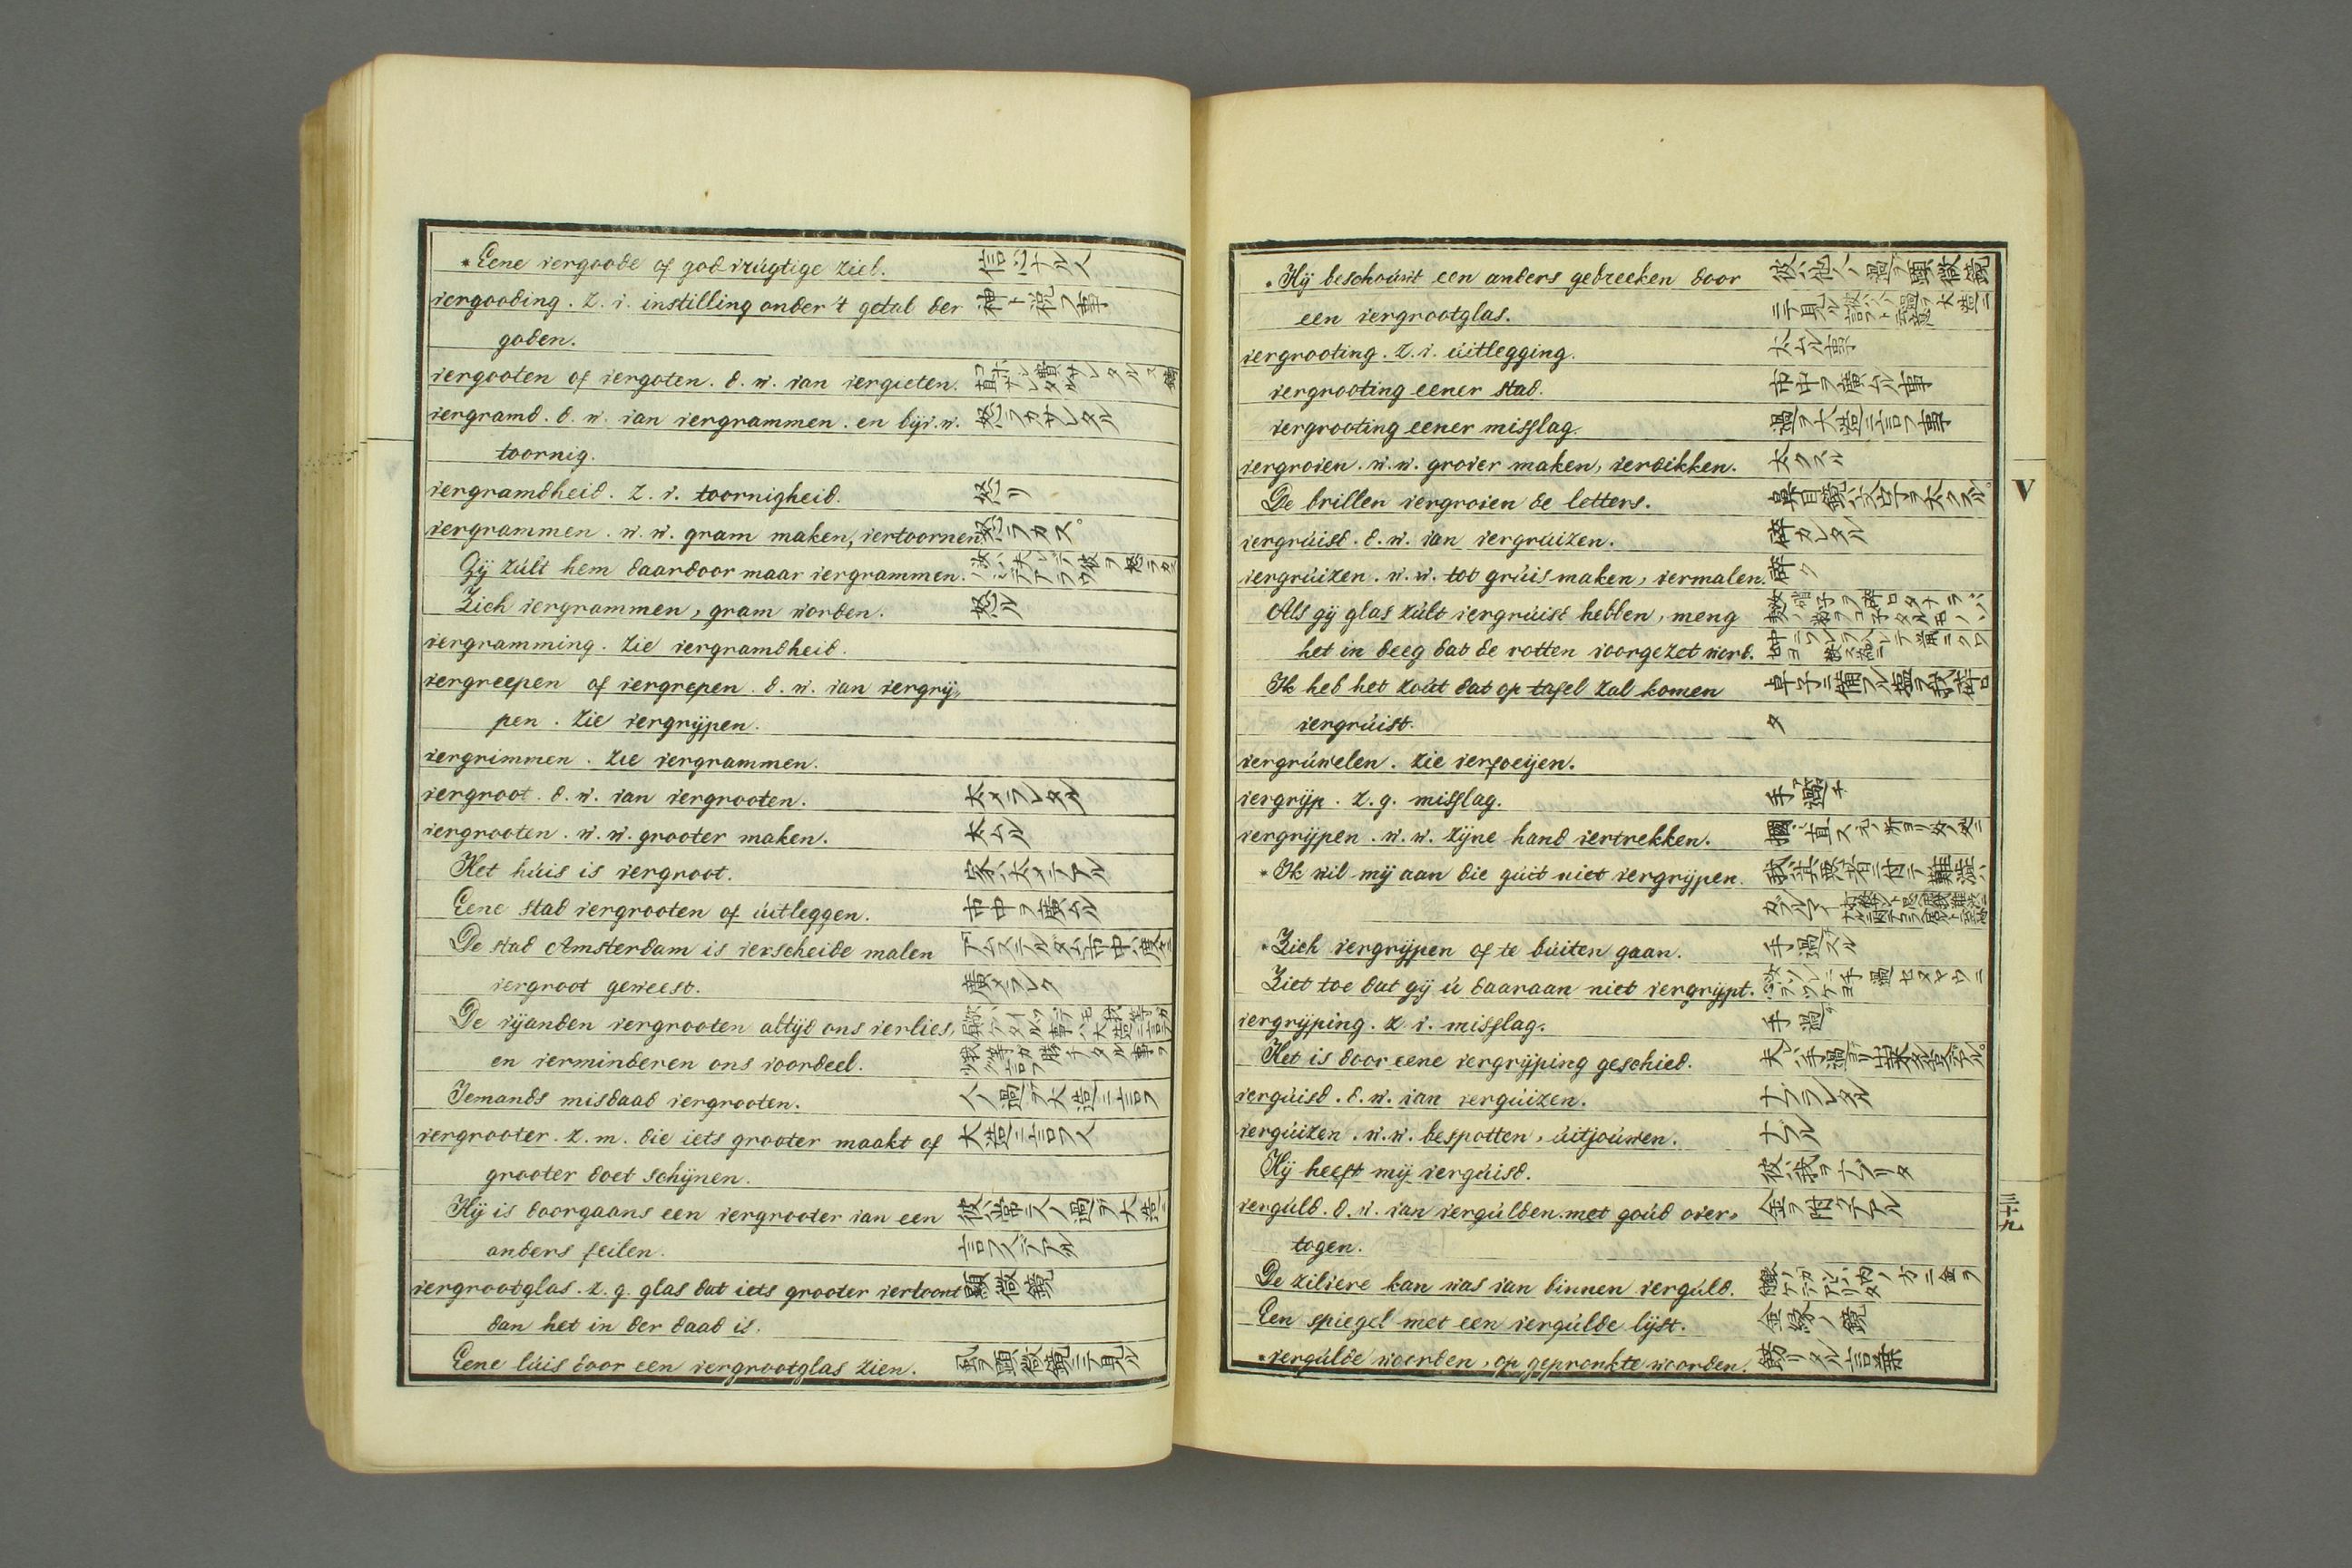 *Eene vergoode of godvrúgtige ziel. 信心ナル人
vergooding. z. v. instelling onder 't getal der 神ト祝フ事
goden.
vergooten of vergoten. d. w. van vergieten.
vergramd. d. w. van vergrammen. en bijv. w. 怒ラカサレタル
toornig.
vergramdheid. z. v. toornigheid. 怒リ
vergrammen. w. w. gram maken, vertoornen. 怒ラカス。
Gij zúlt hem daardoor maar vergrammen.
Zich vergrammen, gram worden. 怒ル
vergramming. zie vergramdheid.
vergreepen of vergrepen. d. w. van vergrij,,
pen. zie vergrijpen.
vergrimmen. zie vergrammen.
vergroot. d. w. van vergrooten. 太メラレタル
vergrooten. w. w. grooter maken. 太ムル
Het húis is vergroot. 家ハ太メテアル
Eene stad vergrooten of úitleggen. 市中ヲ廣ムル
De stad Amsterdam is verscheide malen アムステルダム市中ハ度々
vergroot geweest. 廣メラレタ
De vijanden vergrooten altijd ons verlies,
en verminderen ons voordeel.
Iemands misdaad vergrooten. 人ノ過ヲ大造ニ言フ
vergrooter. z. m. die iets grooter maakt of 大造ニ言フ人
grooter doet schijnen.
Hij is doorgaans een vergrooter van een 彼ハ常ニ人ノ過ヲ大造ニ
anders feilen. 言フ人デアル
vergrootglas. z. g. glas dat iets grooter vertoont 顕微鏡
dan het in der daad is.
Eene lúis door een vergrootglas zien. 虱ヲ顕微鏡ニテ見ル
*Hij beschoúwt een anders gebreeken door 彼ハ他人ノ過ヲ顕微鏡
een vergrootglas. ニテ見ル
vergrooting. z. v. úitlegging. 太ムル事
vergrooting eener stad. 市中ヲ廣ムル事
vergrooting eener misslag. 過ヲ大造ニ言フ事
vergroven. w. w. grover maken, verdikken. 太クスル
De brillen vergroven de letters. 鼻目鏡ハ文字ヲ太クスル。
vergrúisd. d. w. van vergrúizen. 碎カレタル
vergrúizen. w. w. tot grúis maken, vermalen. 碎ク
Als gij glas zúlt vergrúist hebben, meng
het in deeg dat de rotten voorgezet werd.
Ik heb het zoút dat op tafel zal komen 卓子ニ備フル塩ヲ我碎ロ
vergrúist. タ
vergrúwelen. zie verfoeijen.
vergrijp. z. g. misslag. 手過チ
vergrijpen. w. w. zijne hand vertrekken.
*Ik wil mij aan die gúit niet vergrijpen.
*Zich vergrijpen of te búiten gaan. 手過スル
Ziet toe dat gij ú daaraan niet vergrijpt.
vergrijping. z. v. misslag. 手過
Het is door eene vergrijping geschied.
vergúisd. d. w. van vergúizen. ナブラレタル
vergúizen. w. w. bespotten, úitjoúwen. ナブル
Hij heeft mij vergúisd. 彼ハ我ヲナブリタ
vergúld. d. w. van vergúlden. met goúd over,, 金ヲ附ケテアル
togen.
De zilvere kan was van binnen vergúld.
Een spiegel met een vergúlde lijst. 金縁ノ鏡
*vergúlde woorden, op gepronkte woorden. 飾リタル言葉
V
三十九